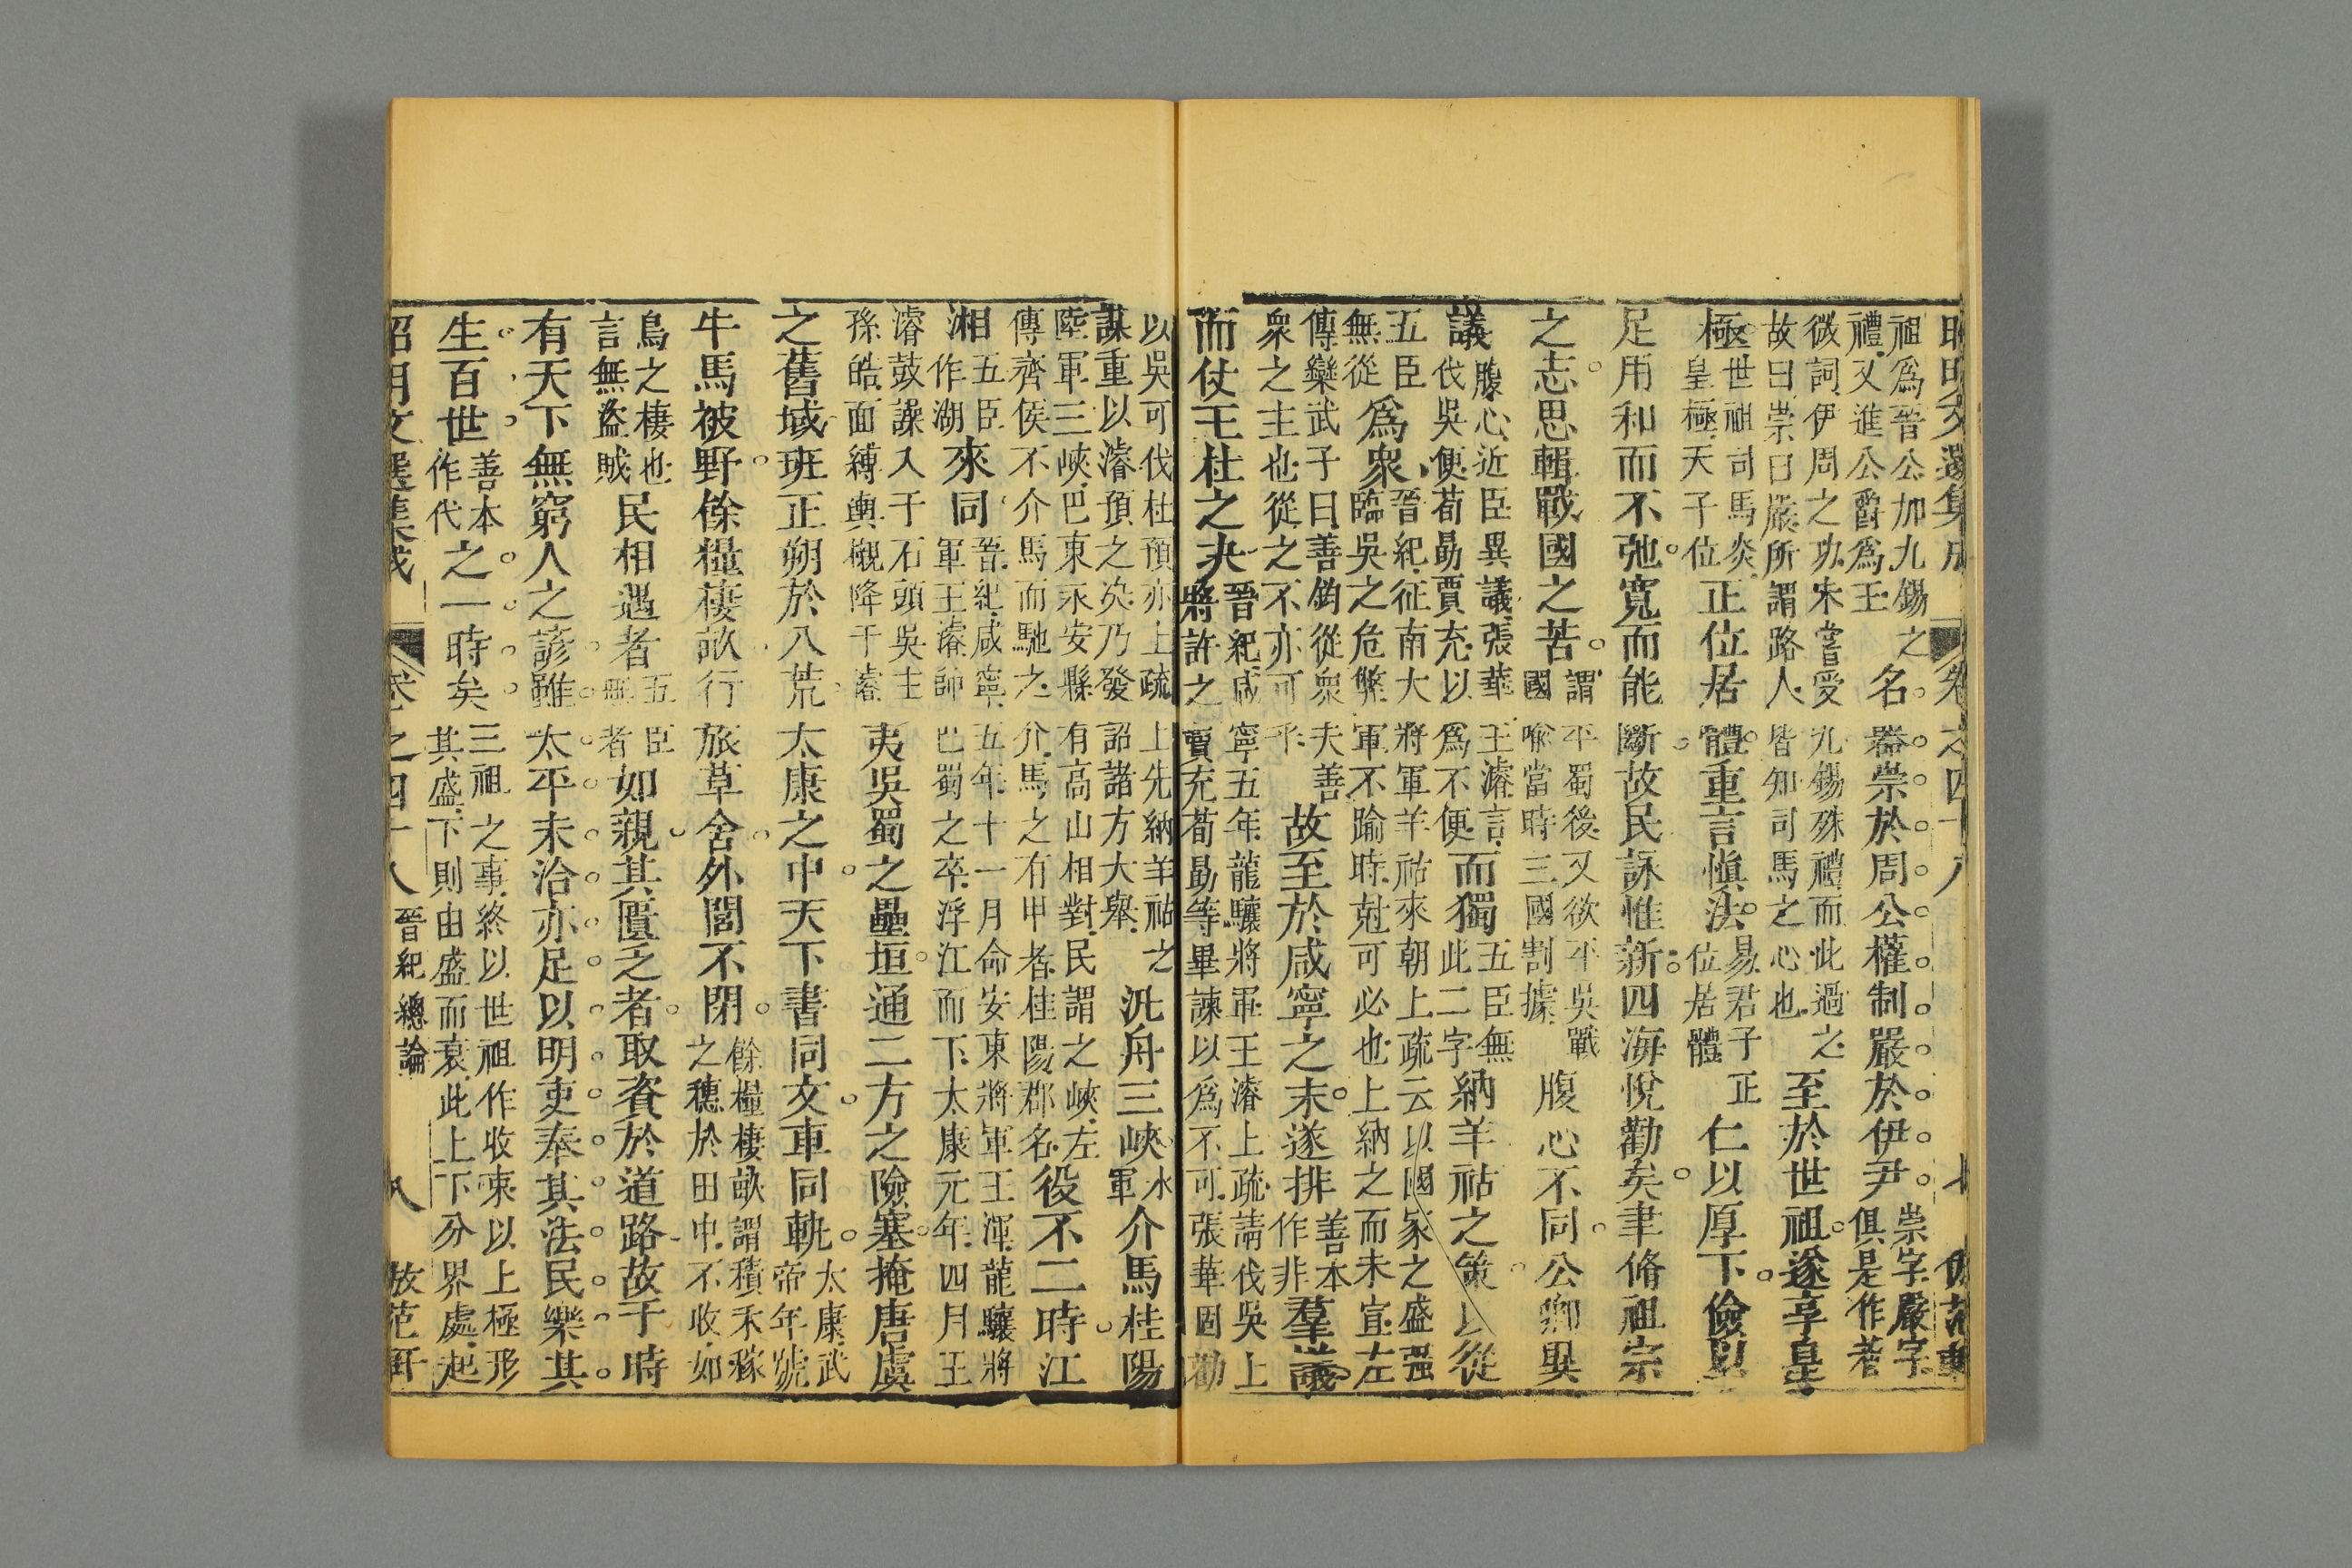 祖為晉公加九錫之禮又進公爵為王名器崇於周公權制嚴於伊尹崇字嚴字俱是作者
微詞伊周之功未嘗受九錫殊禮而此過之故曰崇曰嚴所謂路人皆知司馬之心也至於世祖遂享皇
極世祖司馬炎皇極天子位正位居體重言慎法易君子正位居體仁以厚下儉以
足用和而不弛寬而能斷故民詠惟新四海悅勸矣聿脩祖宗
之志思輯戰國之苦謂平蜀後又欲平吳戰國喻當時三國割據腹心不同公卿異
議腹心近臣異議張華王濬言伐吳便荀勗賈充以為不便而獨五臣無此二字納羊祜之策以從
五臣無從為衆晉紀征南大將軍羊祜來朝上疏云以國家之盛强臨吳之危弊軍不踰時尅可必也上納之而未宣左
傳欒武子曰善鈞從衆夫善衆之主也從之不亦可乎故至於咸寧之末遂排善本作非羣議
而仗王杜之决晉紀咸寧五年龍驤將軍王濬上疏請伐吳上將許之賈充荀勗等畢諫以為不可張華固勸
以吳可伐杜預亦上疏上先納羊祜之謀重以濬預之决乃發詔諸方大舉汎舟三峽水軍介馬桂陽
陸軍三峽巴東永安縣有高山相對民謂之峽左傳齊侯不介馬而馳之介馬之有甲者桂陽郡名役不二時江
湘五臣作湖來同晉紀咸寧五年十一月命安東將軍王渾龍驤將軍王濬帥巴蜀之卒浮江而下太康元年四月王
濬鼓譟入于石頭吳主孫皓面縛輿櫬降于濬夷吳蜀之壘垣通二方之險塞掩唐虞
之舊域班正朔於八荒太康之中天下書同文車同軌太康武帝年號
牛馬被野餘糧棲畝行旅草舍外閭不閉餘糧棲畝謂積禾稼之穗於田中不收如
鳥之棲也言無盜賊民相遇者五臣無者如親其匱之者取資於道路故于時
有天下無窮人之諺雖太平未洽亦足以明吏奉其法民樂其
生百世善本作代之一時矣三祖之事終以世祖作收束以上極形其盛下則由盛而衰此上下分界處起
昭明文選集成 卷之四十八 晉紀總論 八